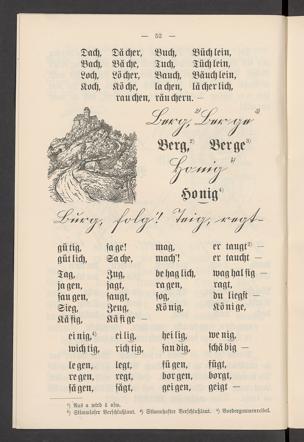 — 52 —
Dach, Dä cher, Buch, Büch lein,
Bach, Bä che, Tuch, Tüch lein,
Loch, Lö cher, Bauch, Bäuch lein,
Koch, Kö che, la chen, lä cher lich,
rau chen, räu chern. —
Berg,²⁾ Ber ge³⁾
Berg,²⁾ Ber ge³⁾
Honig⁴⁾
Honig⁴⁾
Burg, folg! Teig, regt
gü tig, sa ge! mag, er taugt²⁾ —
güt lich, Sa che, mach'! er taucht —
Tag, Zug, be hag lich, wag hal sig —
ja gen, jagt, ra gen, ragt,
sau gen, saugt, sog, du liegst —
Sieg, Zeug, Kö nig, Kö ni ge,
Kä fig, Kä fi ge —
ei nig,⁴⁾ ei lig, hei lig, we nig,
wich tig, rich tig, san dig, schä big —
le gen, legt, fü gen, fügt,
re gen, regt, bor gen, borgt,
sä gen, sägt, gei gen, geigt —
¹⁾ Aus a wird ä usw.
²⁾ Stimmloser Verschlußlaut. ³⁾ Stimmhafter Verschlußlaut. ⁴⁾ Vordergaumenreibel.